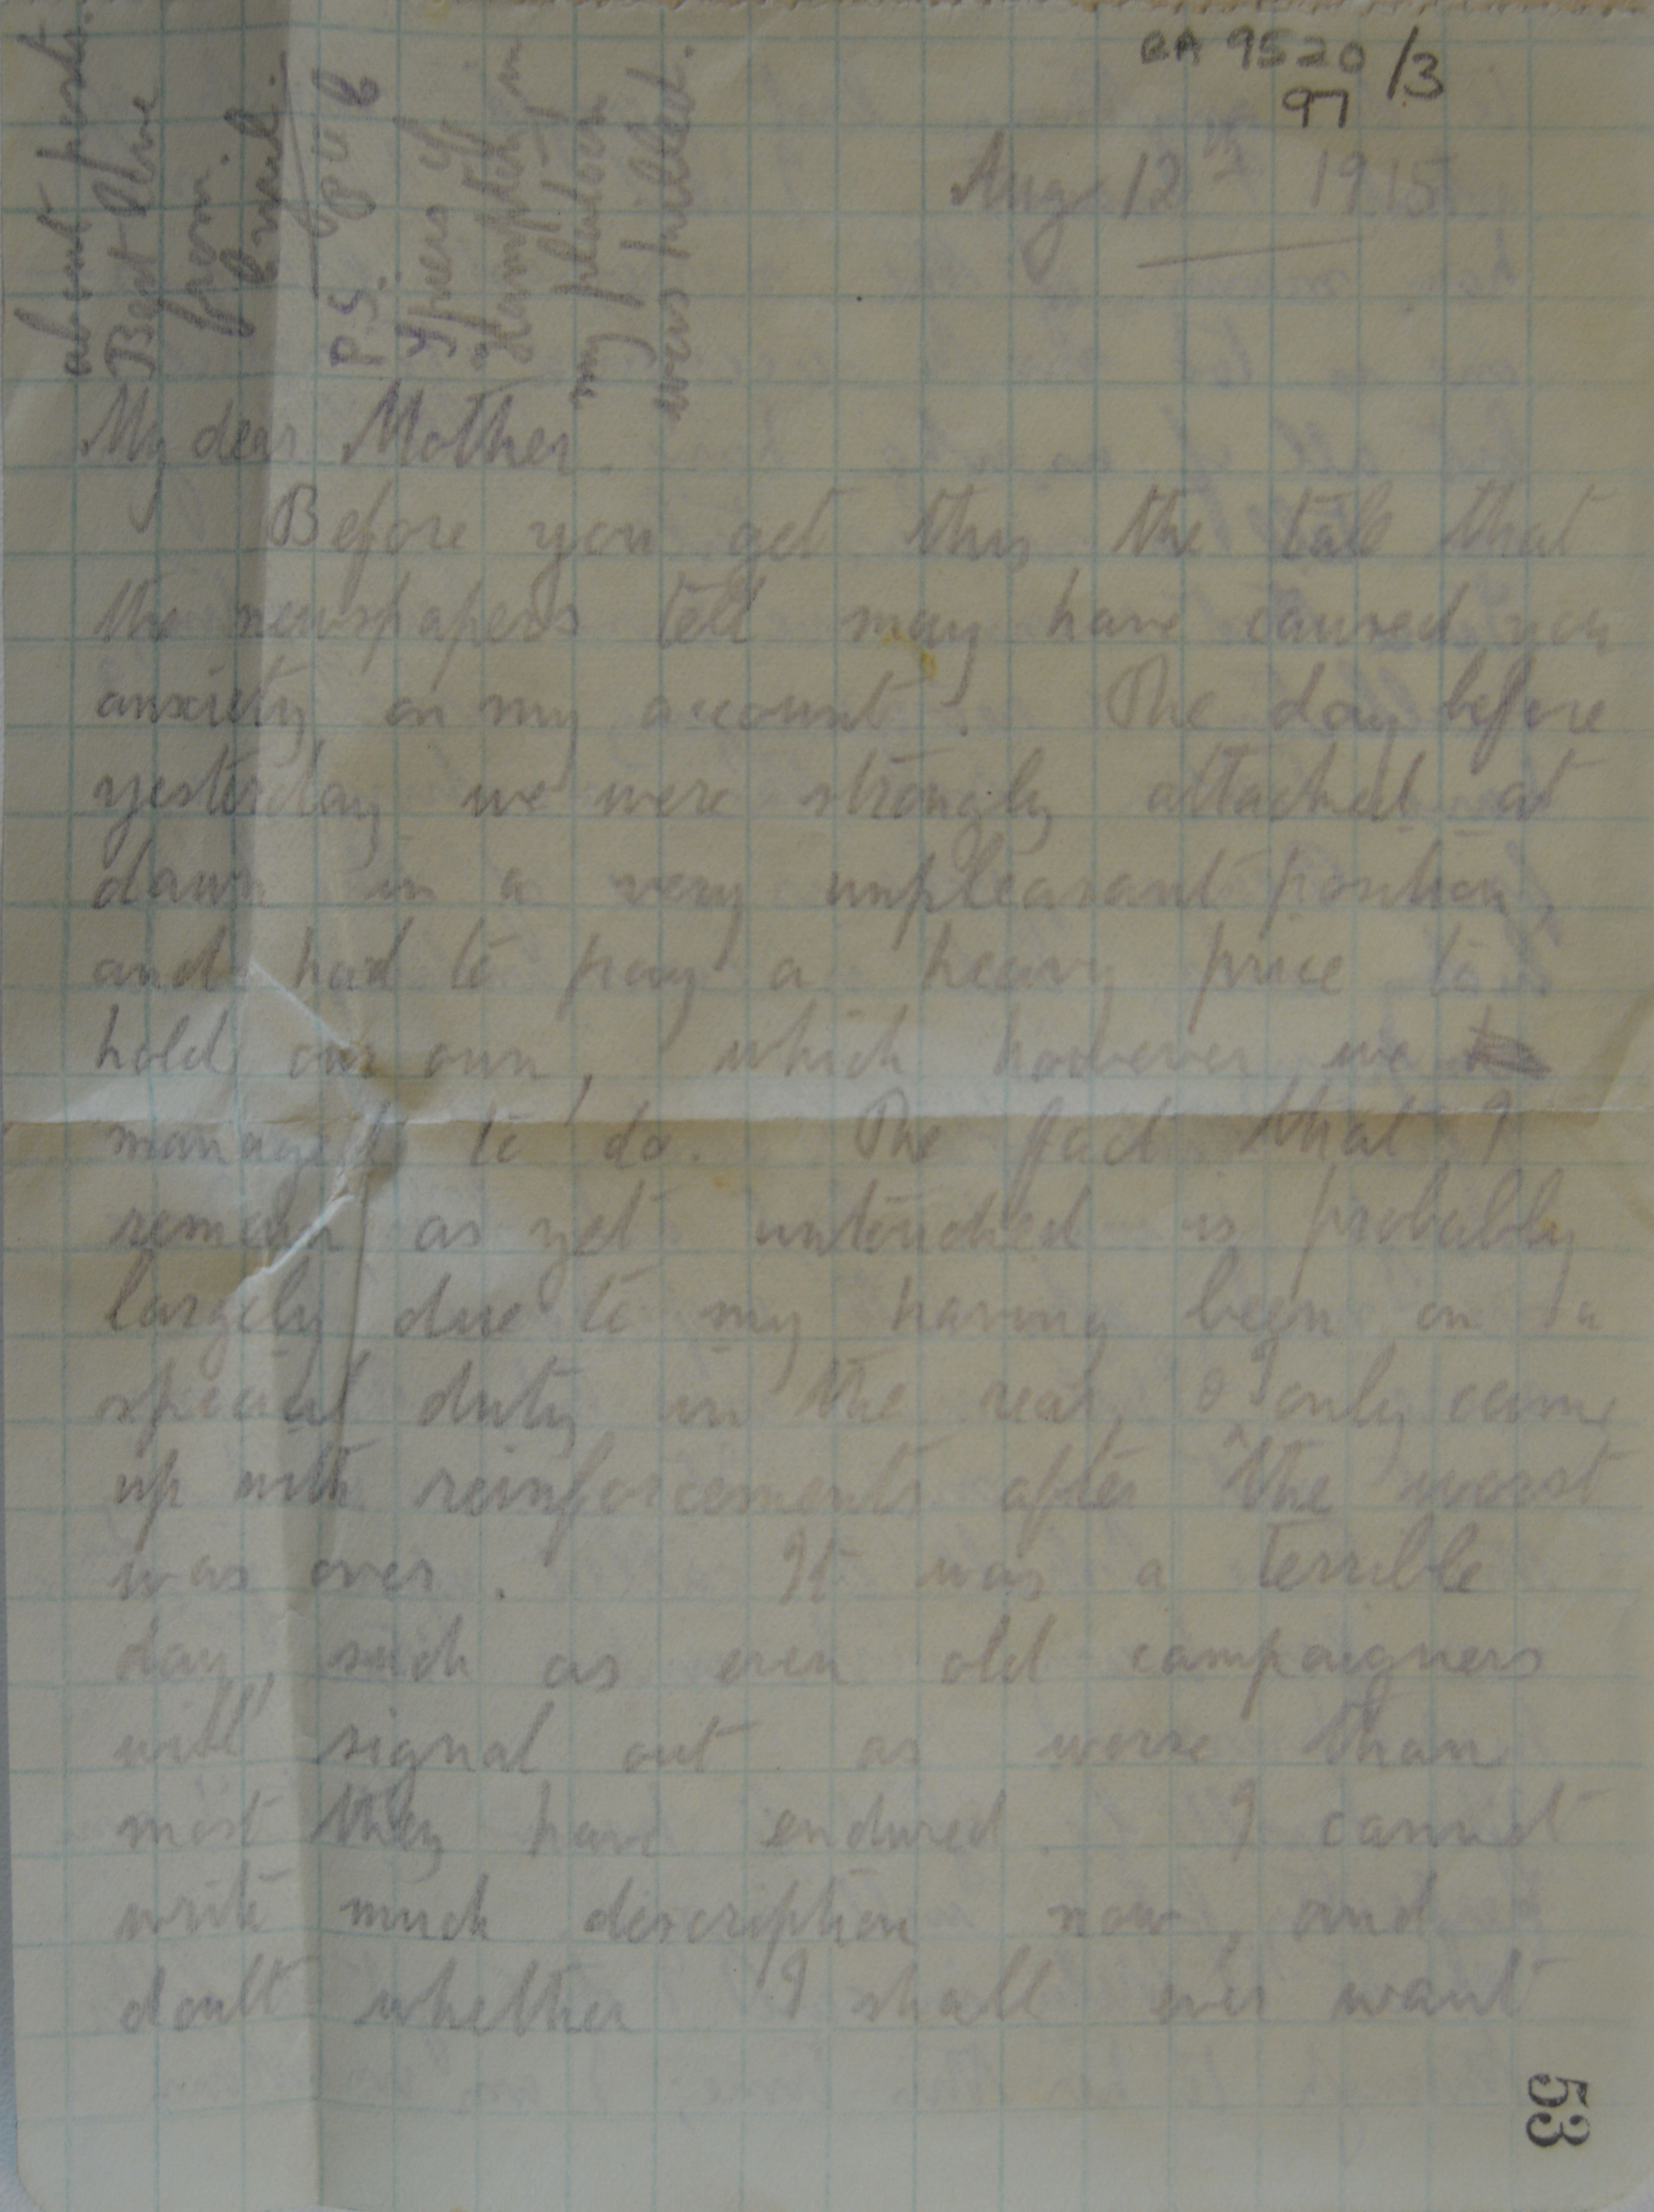 BA 9520/3
97
Aug 12th 1915
My dear Mother.
Before you get this the tale that
the newspapers tell may have caused you
anxiety on my account. The day before
yesterday we were strongly attacked at
dawn in a very unpleasant position,
and had to pay a heavy price to
hold our own, which however we
managed to do. The fact that I
remain as yet untouched is probably
largely due to my having been on a
special duty in the rear, & I only came
up with reinforcements after the worst
was over. It was a terrible
day, such as even old campaigners
will signal out as worse than
most they have endured. I cannot
write much description now, and
doubt whether I shall ever want
about posts.
Best love
from
P.S.
my platoon
was killed.
53